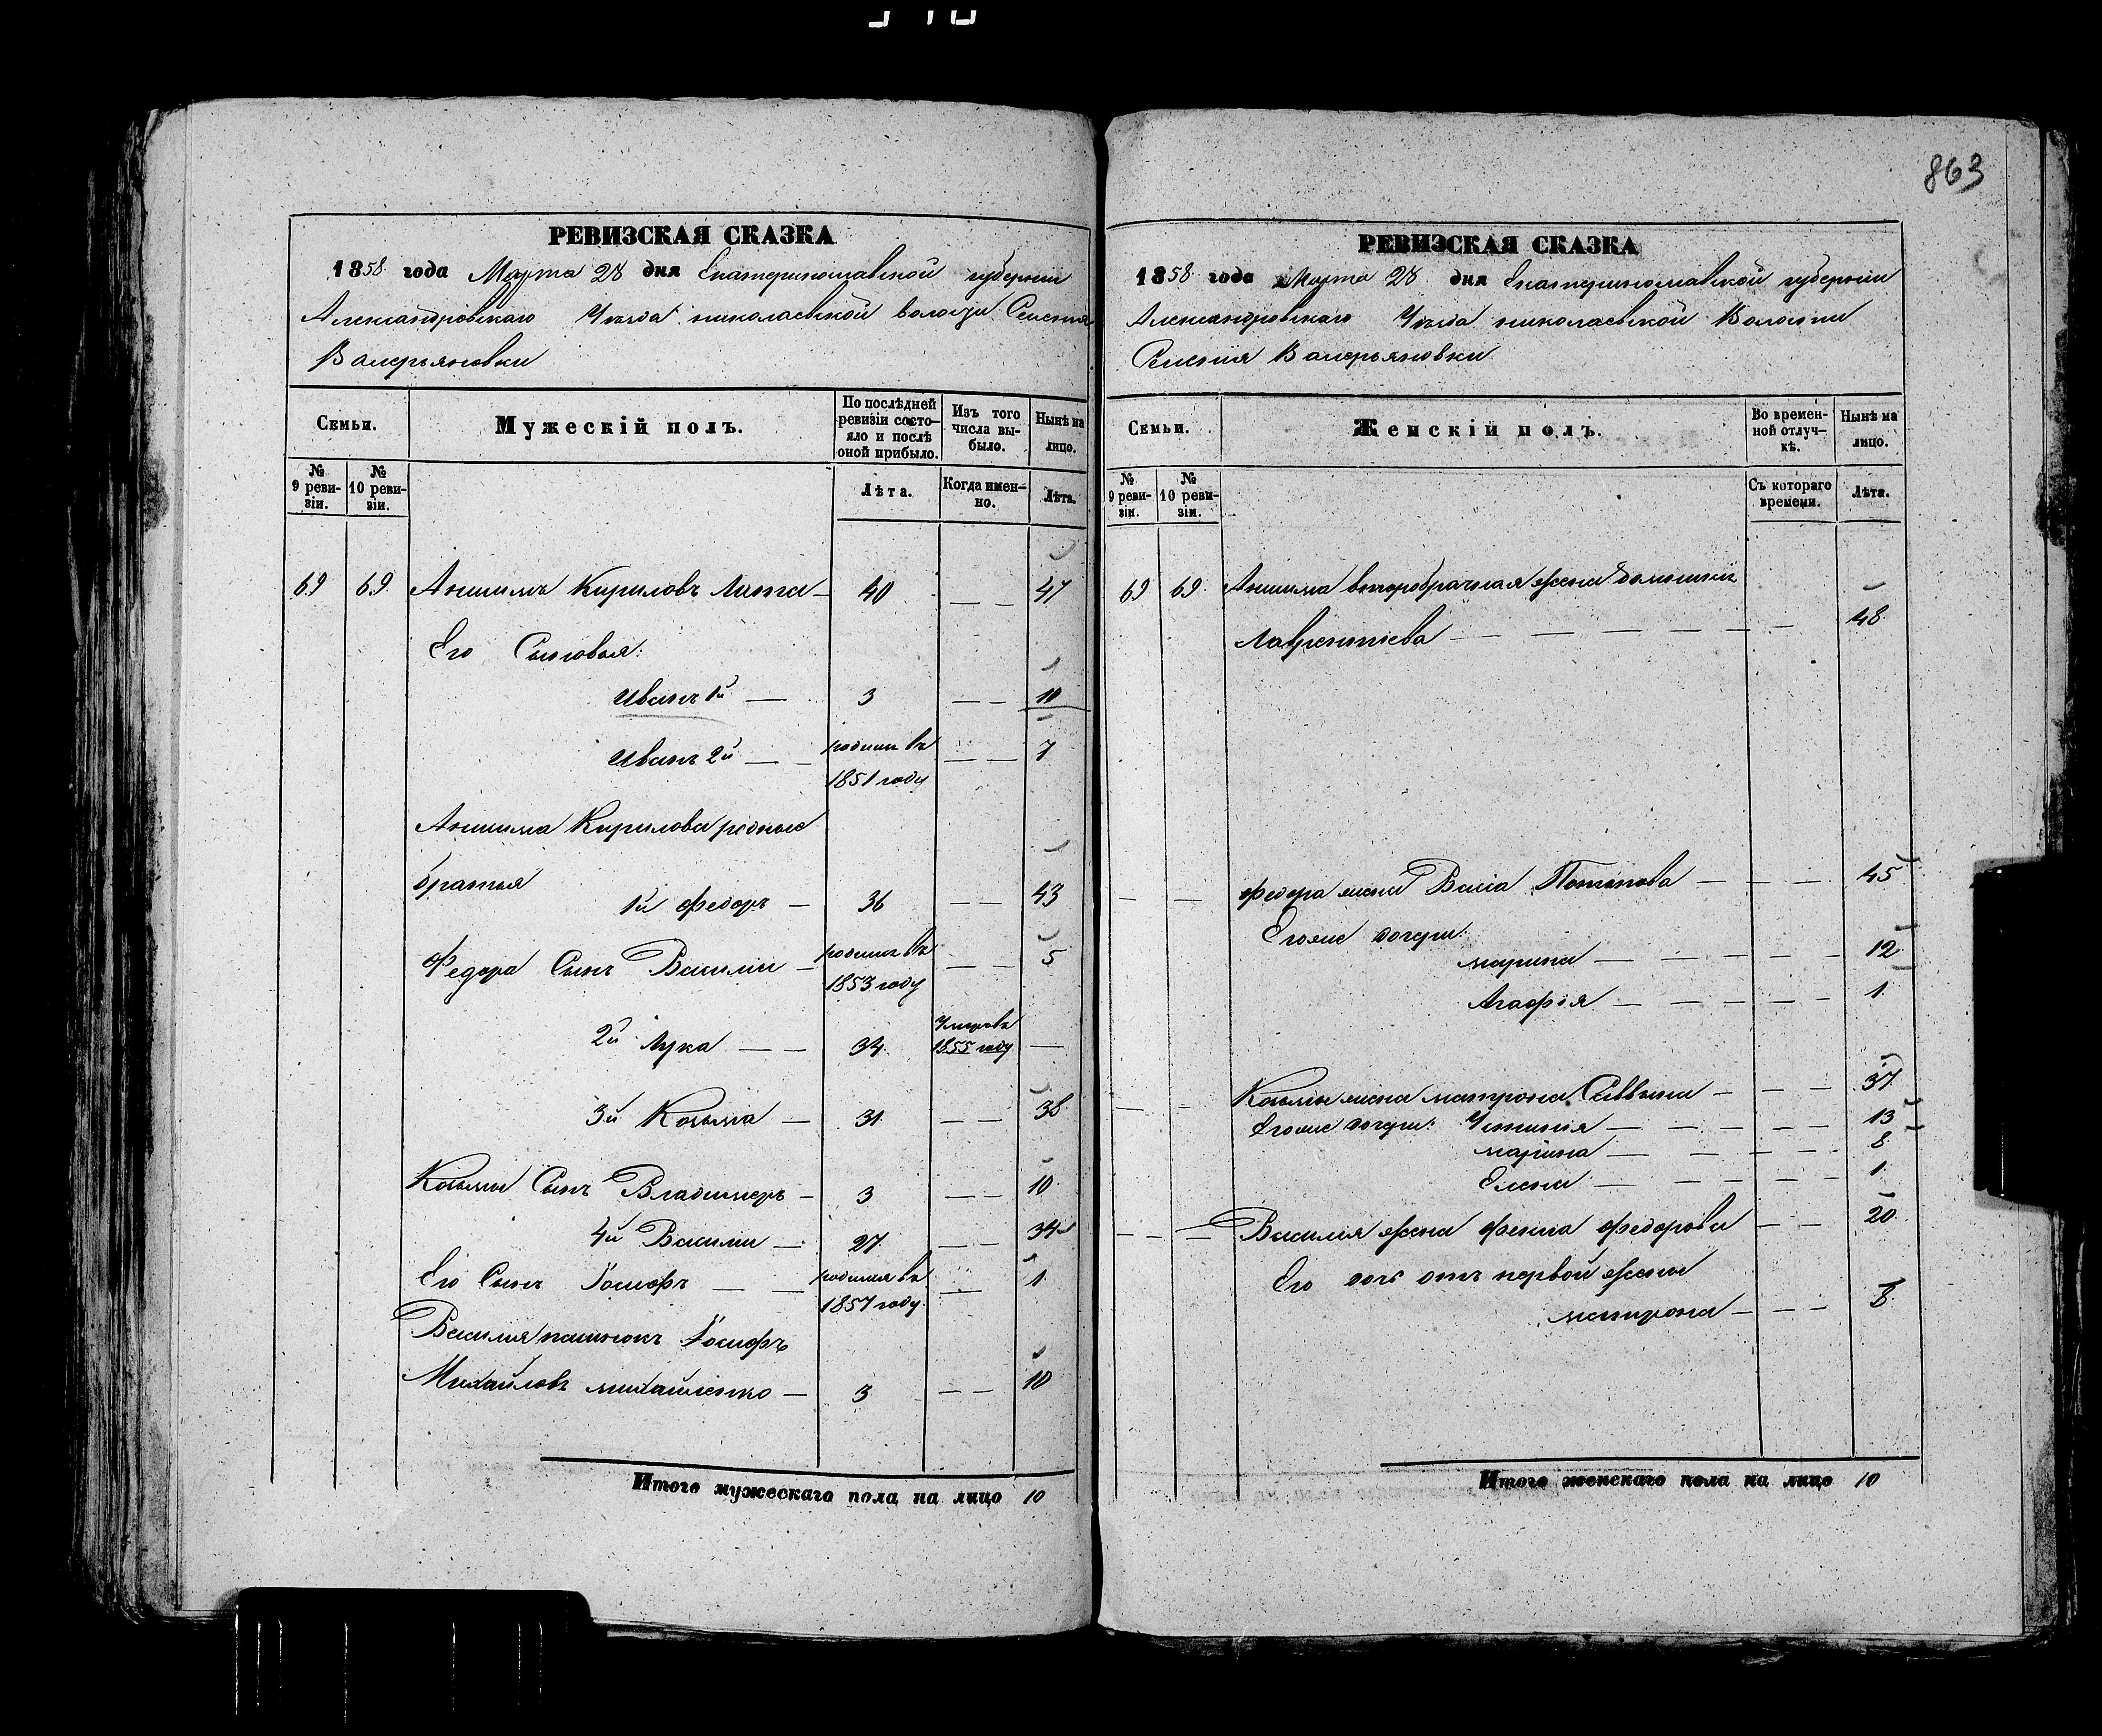 863
РЕВИЗСКАЯ СКАЗКА
1858 года Марта 28 дня Екатеринославской губернии
Александровскаго Уѣзда николаевской волости Селения
Валерьяновки
Семьи.
Мужескій полъ.
По послѣдней ревизіи состояло и послѣ оной прибыло.
Изъ того числа выбыло.
Нынѣ на лицо.
№ 9 ревизіи.
№ 10 ревизіи.
Лѣта.
Когда именно.
Лѣта.
69 69 Анисимъ Кириловъ 40 — — 47
Его Сыновья:
Иванъ 1й — 3 — — 10
Иванъ 2й — — родился въ 1851 году — — 7
Анисима Кирилова родные
братья
1й Федоръ — 36 — — 43
Федора Сынъ Василий — родился въ 1853 году — — 5
2й Лука — — 34 Умеръ въ 1855 году —
3й Козьма — 31 — — 38
Козьмы Сынъ Владимеръ — 3 — — 10
4й Василий — 27 — — 34
Его Сынъ Іосифъ — — родился въ 1857 году — 1
Василия пасынокъ Іосифъ
Михайловъ михайленко — 3 — — 10
Итого мужескаго пола на лицо 10
РЕВИЗСКАЯ СКАЗКА
1858 года Марта 28 дня Екатеринославской губернии
Александровскаго Уѣзда николаевской Волости
Селения Валерьяновки
Семьи.
Женскій полъ.
Во временной отлучкѣ.
Нынѣ на лицо.
№ 9 ревизіи.
№ 10 ревизіи.
Съ котораго времени.
Лѣта.
69 69. Анисима второбрачная жена
Лаврентиева — — — — — — — 48
— — Федора жена Васса Потапова — — — 45
Егоже дочери:
марина — — — — — — 12
Агафія — — — — — — 1
— — Козьмы жена матрона Саввина — — — 37
Егоже дочери: Устиния — — — — — — 13
марина — — — — — 8
Елена — — — — — 1
— — — Василия жена Федорова — — 20
Его дочь отъ первой жены
матрона — — — 8
Итого женскаго пола на лицо 10